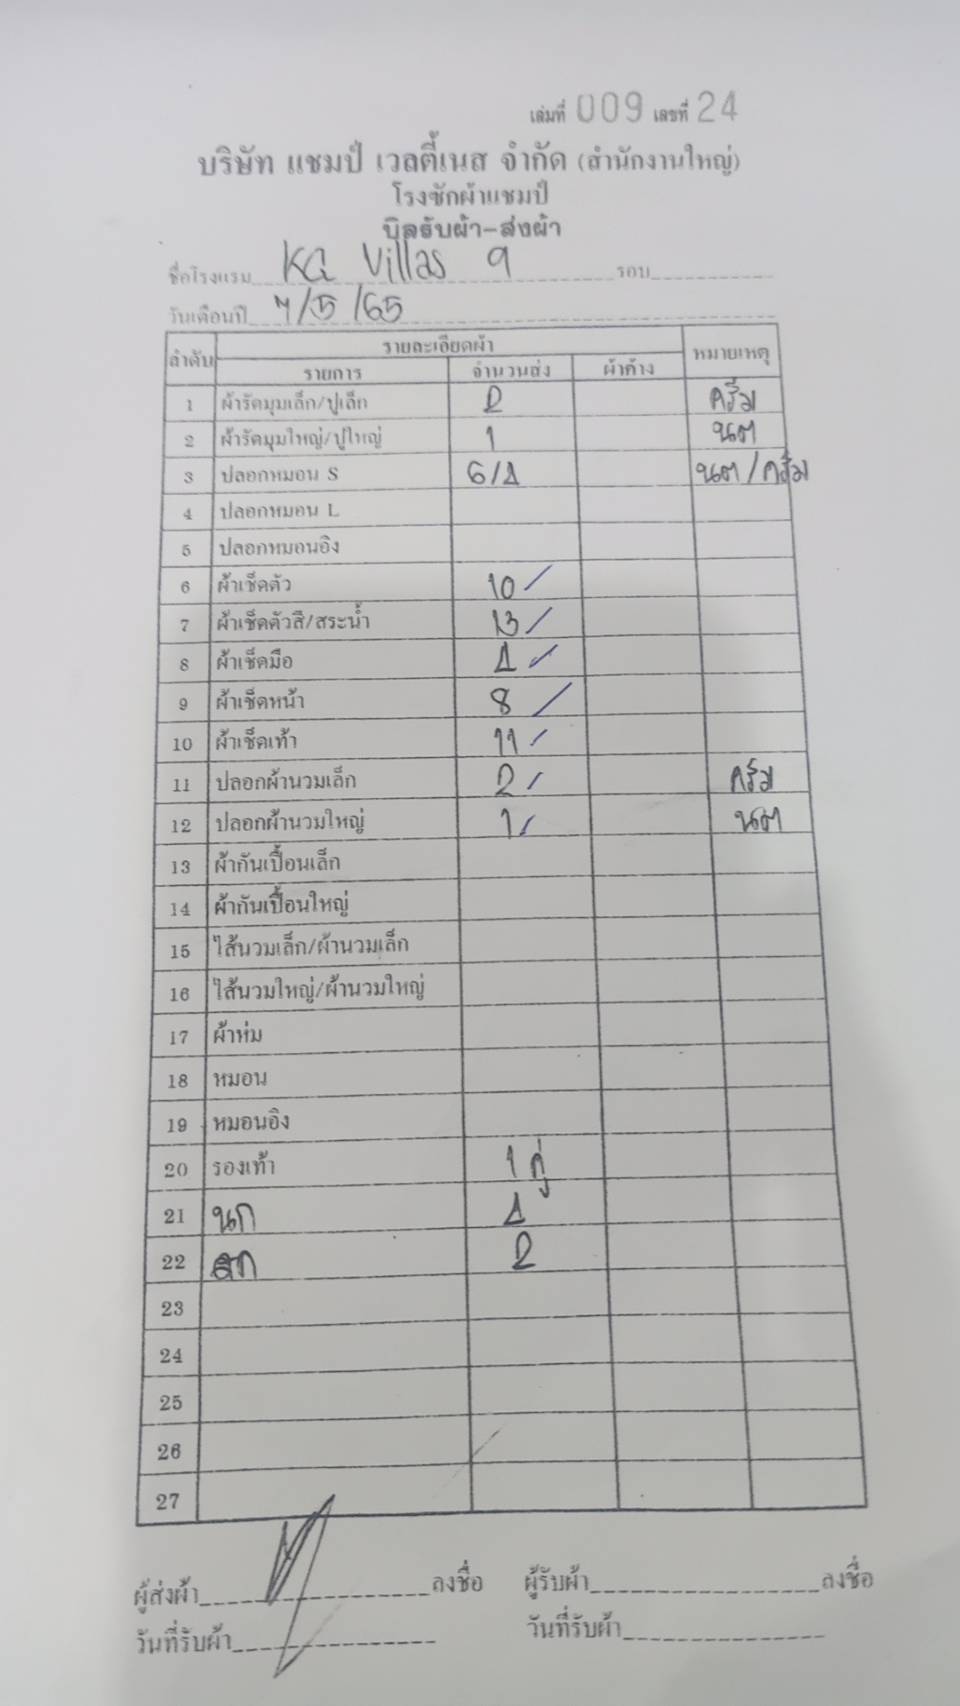 เล่มที่ 009 เลขที่ 24
บริษัท แชมป์ เวลตี้เนส จำกัด (สำนักงานใหญ่)
โรงซักผ้าแชมป์
บิลรับผ้า-ส่งผ้า
ชื่อโรงแรม KG Villas 9 รอบ
วันเดือนปี 7/5/65
ลำดับ รายละเอียดผ้า หมายเหตุ
รายการ จำนวนส่ง ผ้าค้าง
1 ผ้ารัดมุมเล็ก/ปูเล็ก 2 ครีม
2 ผ้ารัดมุมใหญ่/ปูใหญ่ 1 นต
3 ปลอกหมอน S 6/4 นต/ครีม
4 ปลอกหมอน L
5 ปลอกหมอนอิง
6 ผ้าเช็ดตัว 10
7 ผ้าเช็ดตัวสี/สระน้ำ 13
8 ผ้าเช็ดมือ 4
9 ผ้าเช็ดหน้า 8
10 ผ้าเช็ดเท้า 11
11 ปลอกผ้านวมเล็ก 2 ครีม
12 ปลอกผ้านวมใหญ่ 1 นต
13 ผ้ากันเปื้อนเล็ก
14 ผ้ากันเปื้อนใหญ่
15 ไส้นวมเล็ก/ผ้านวมเล็ก
16 ไส้นวมใหญ่/ผ้านวมใหญ่
17 ผ้าห่ม
18 หมอน
19 หมอนอิง
20 รองเท้า 1 คู่
21 นก 4
22 2
23
24
25
26
27
ผู้ส่งผ้า ลงชื่อ ผู้รับผ้า ลงชื่อ
วันที่รับผ้า วันที่รับผ้า